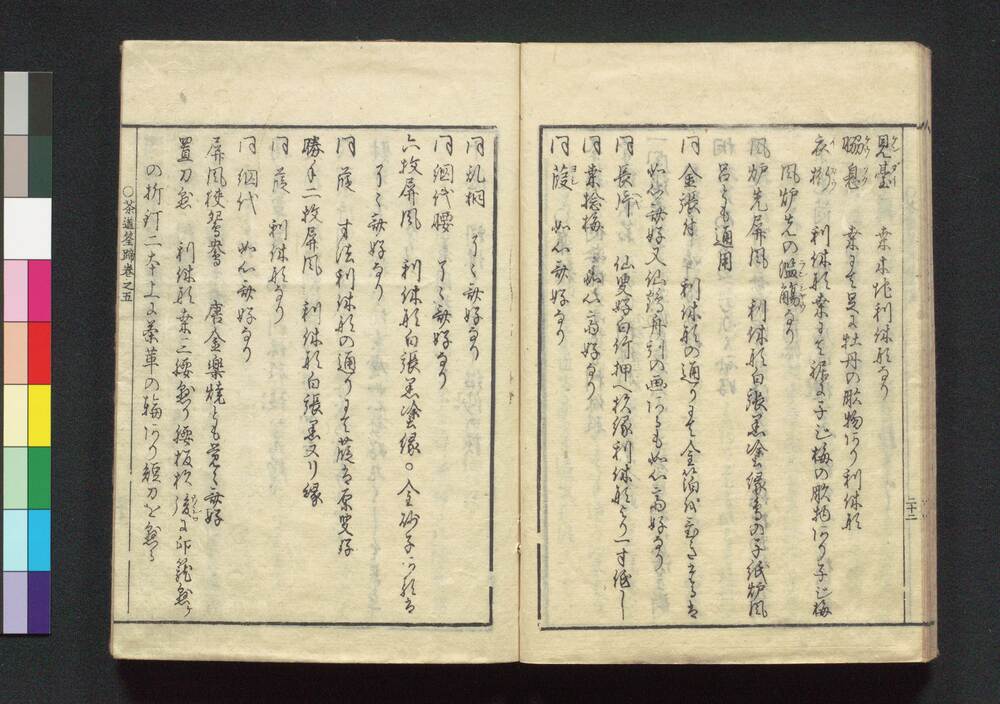 見臺 桑木地利休形なり
脇息 桑にて足に牡丹の彫物あり利休形
衣桁 利休形桑にて裾に子コ梅の彫物あり子コ梅
風炉先の濫觴なり
風炉先屏風 利休形白張黒塗縁鳥の子紙炉風
呂とも通用
同 金張付 利休形の通りにて金箔
如心斎好又仙鶴舟引の画あるも如心斎好なり
同 長片 仙叟好白竹押へ杉縁利休形より一寸低し
同 業捻梅 如心斎好なり
同 葭 如心斎好なり
二十二
同 孔桐 了々斎好なり
同 網代腰 了々斎好なり
六枚屏風 利休形白張黒塗縁○金砂子
了々斎好なり
同 葭 寸法利休形の通りにて葭は原叟好
勝手二枚屏風 利休形白張黒又リ縁
同 葭 利休形なり
同 網代 如心斎好なり
屏風挟鴛鴦 唐金樂燒とも覚々斎好
置刀掛 利休形桑二腰掛り腰板杉後に印籠掛
の折釘二本上に菊革の輪あり短刀を掛る
○茶道筌蹄巻之五